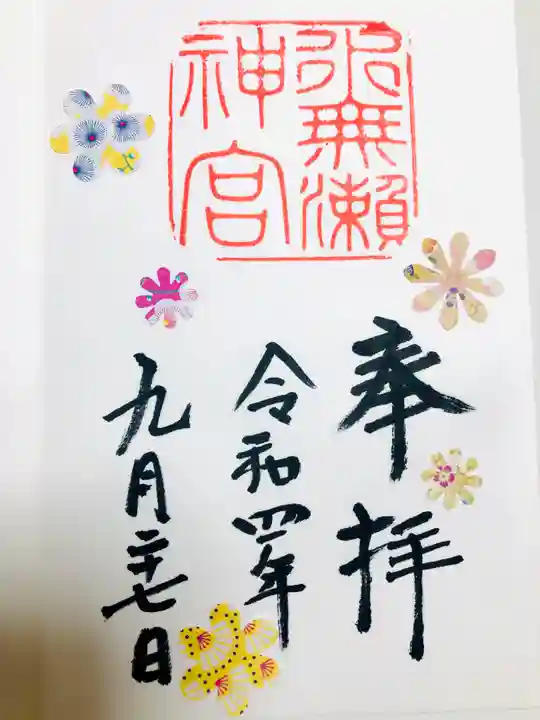 水無瀬
神宮
奉拝
令和四年
九月二十七日